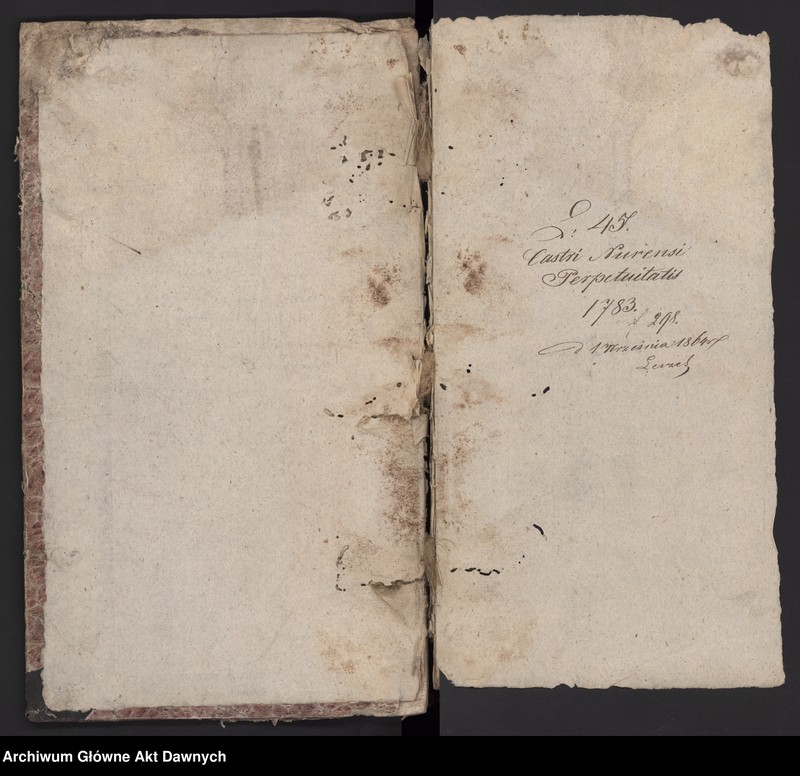 L: 45.
Castri Nurensi
Perpetuitatis
1783.
f 298.
d 1 Września 1864 r
Archiwum Główne Akt Dawnych